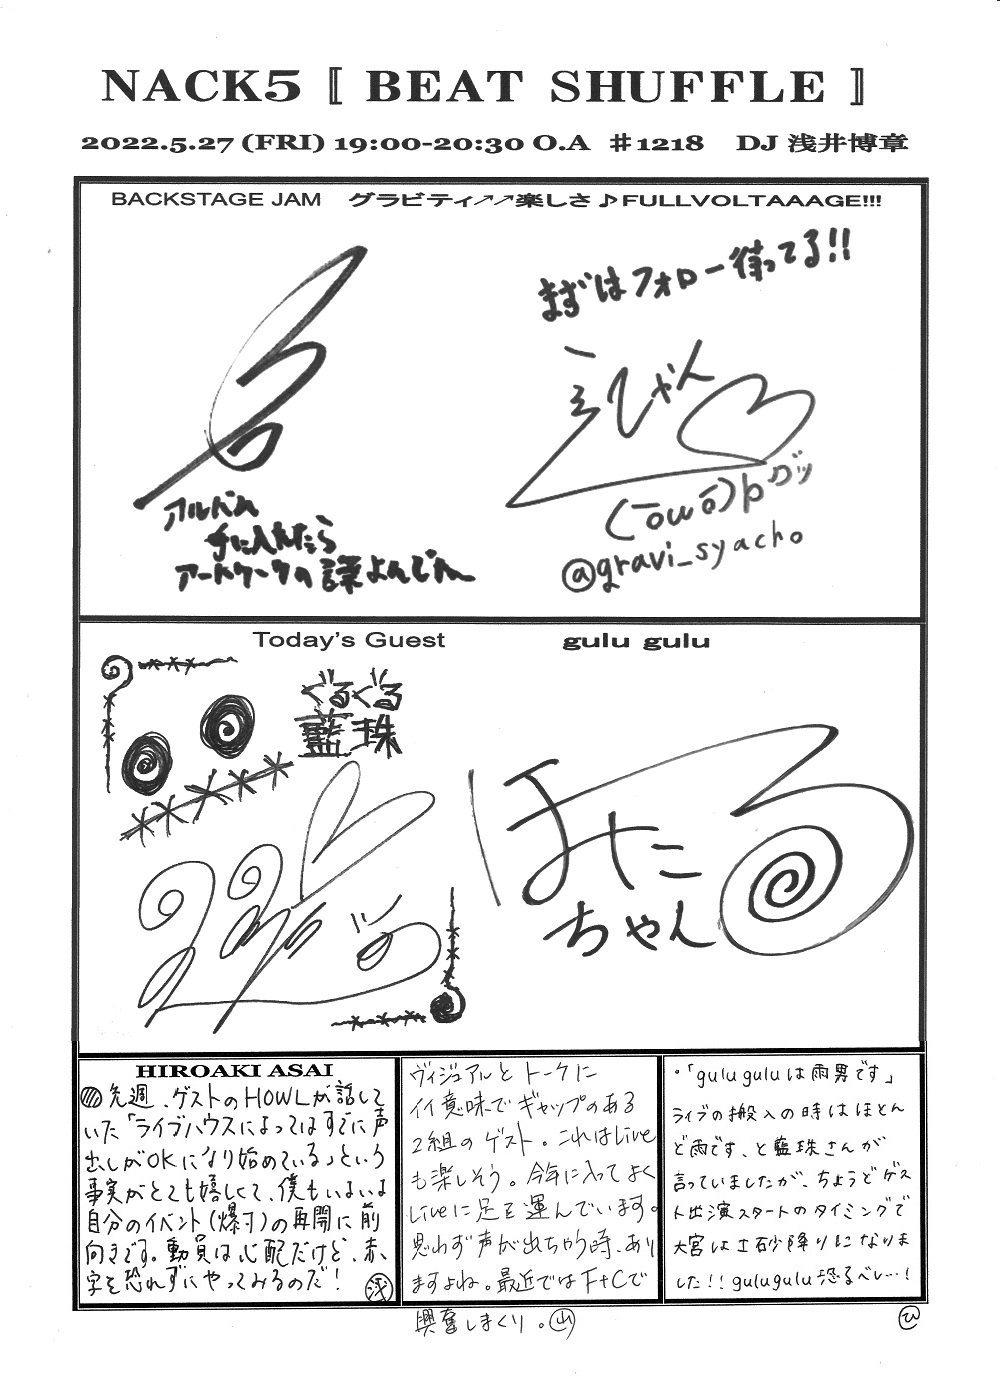 NACK5 〚 BEAT SHUFFLE 〛
2022.5.27 (FRI) 19:00-20:30 O.A ♯1218 DJ 浅井博章
BACKSTAGE JAM グラビティ↗↗楽しさ♪FULLVOLTAAAGE!!!
アルバム
手に入れたら
アートワークの 謎よんでね
まずはフォロー待ってる!!
(ōωō)b グッ
@gravi_syacho
Today's Guest gulu gulu
ぐるぐる
藍珠
ほたる
ちゃん
HIROAKI ASAI
先週、ゲストのHOWLが話して
いた「ライブハウスによってはすでに声
出しがOKになり始めている」という
事実がとても嬉しくて、僕もいよいよ
自分のイベント(爆ヨ)の再開に前
向きです。動員は心配だけど、赤
字を恐れずにやってみるのだ! 浅
ヴィジュアルとトークに
イイ意味でギャップのある
2組のゲスト。これはLive
も楽しそう。今年に入ってよく
Liveに足を運んでいます。
思わず声が出ちゃう時、あり
ますよね。最近ではF+Cで
興奮しまくり。山
・「gulu guluは雨男です」
ライブの搬入の時はほとん
ど雨です、と藍珠さんが
言っていましたが、ちょうどゲス
ト出演スタートのタイミングで
大宮は土砂降りになりま
した!! gulugulu恐るべし…!
ひ